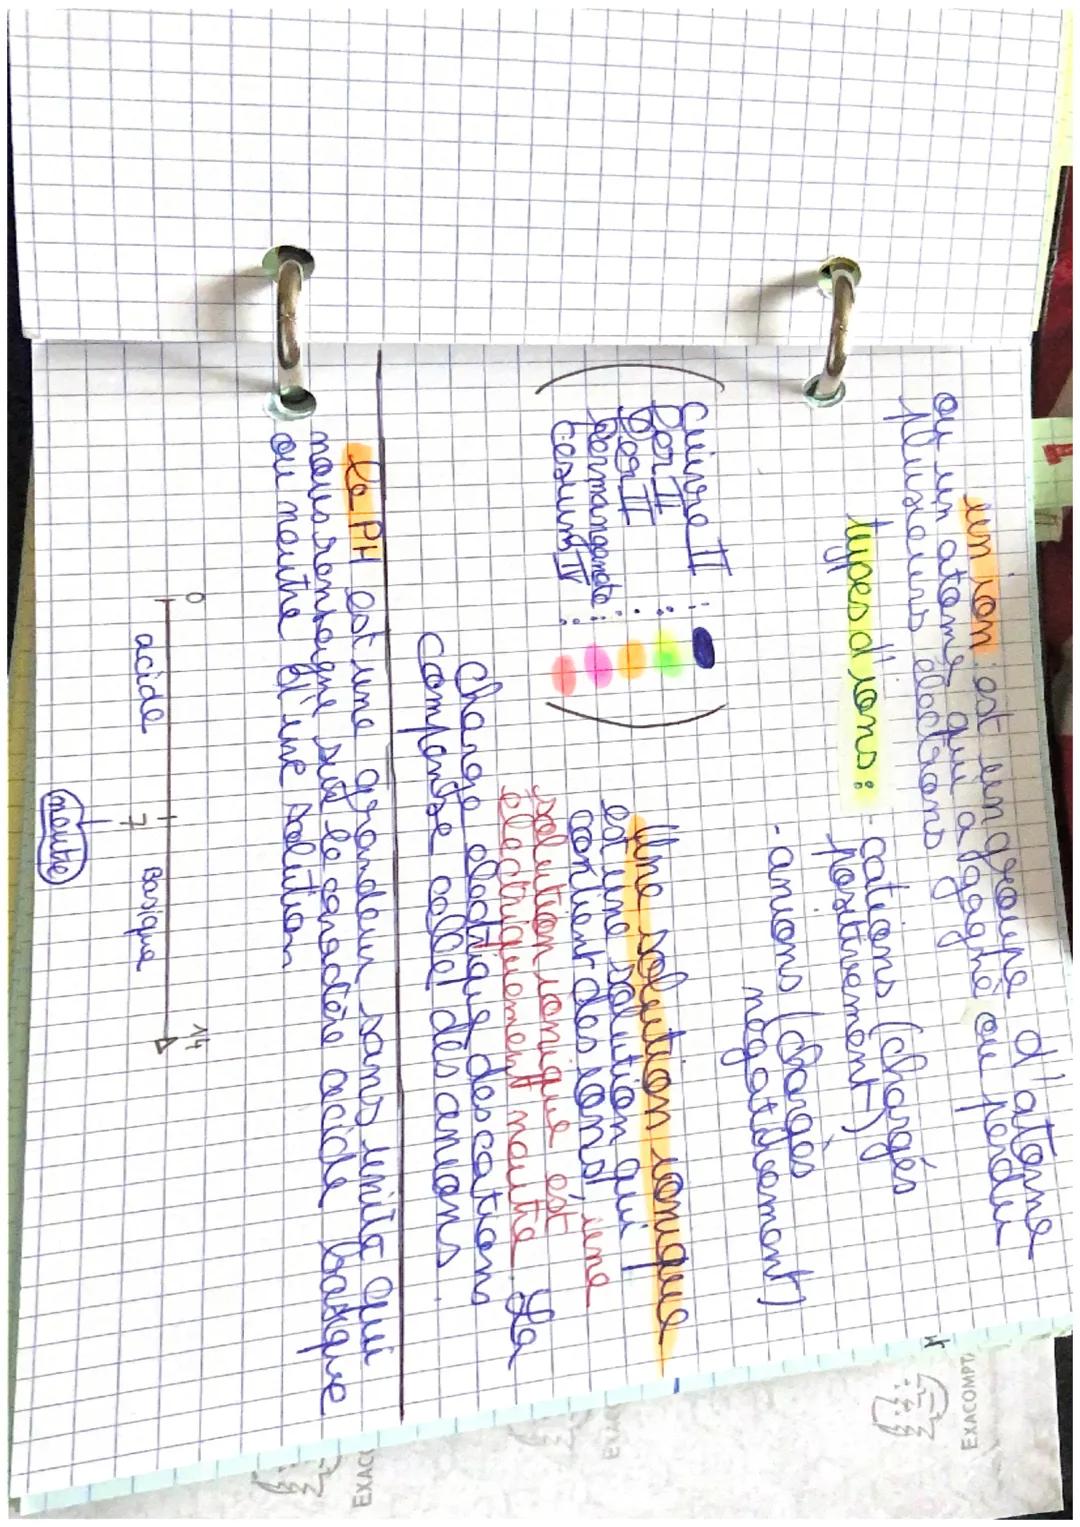 un ion est un groupe d'atome
ou un atome qui a gagné ou perdu
plusieurs électrons
types d'ions :
- cations (chargés
positivement)
- anions (chargés
négativement)
Cuivre II :
fer II :
fer III :
permanganate :
Cesium IV :
Une solution ionique
est une solution qui
contient des ions, une
solution ionique est
electriquement neutre. La
charge electrique des cations
compense celle des anions.
le PH est une grandeur sans unité qui
nous renseigne sur le caractère acide basique
ou neutre d'une solution
0 7 14
acide Basique
neutre
EXACOMPTA
EXAC
EXAC